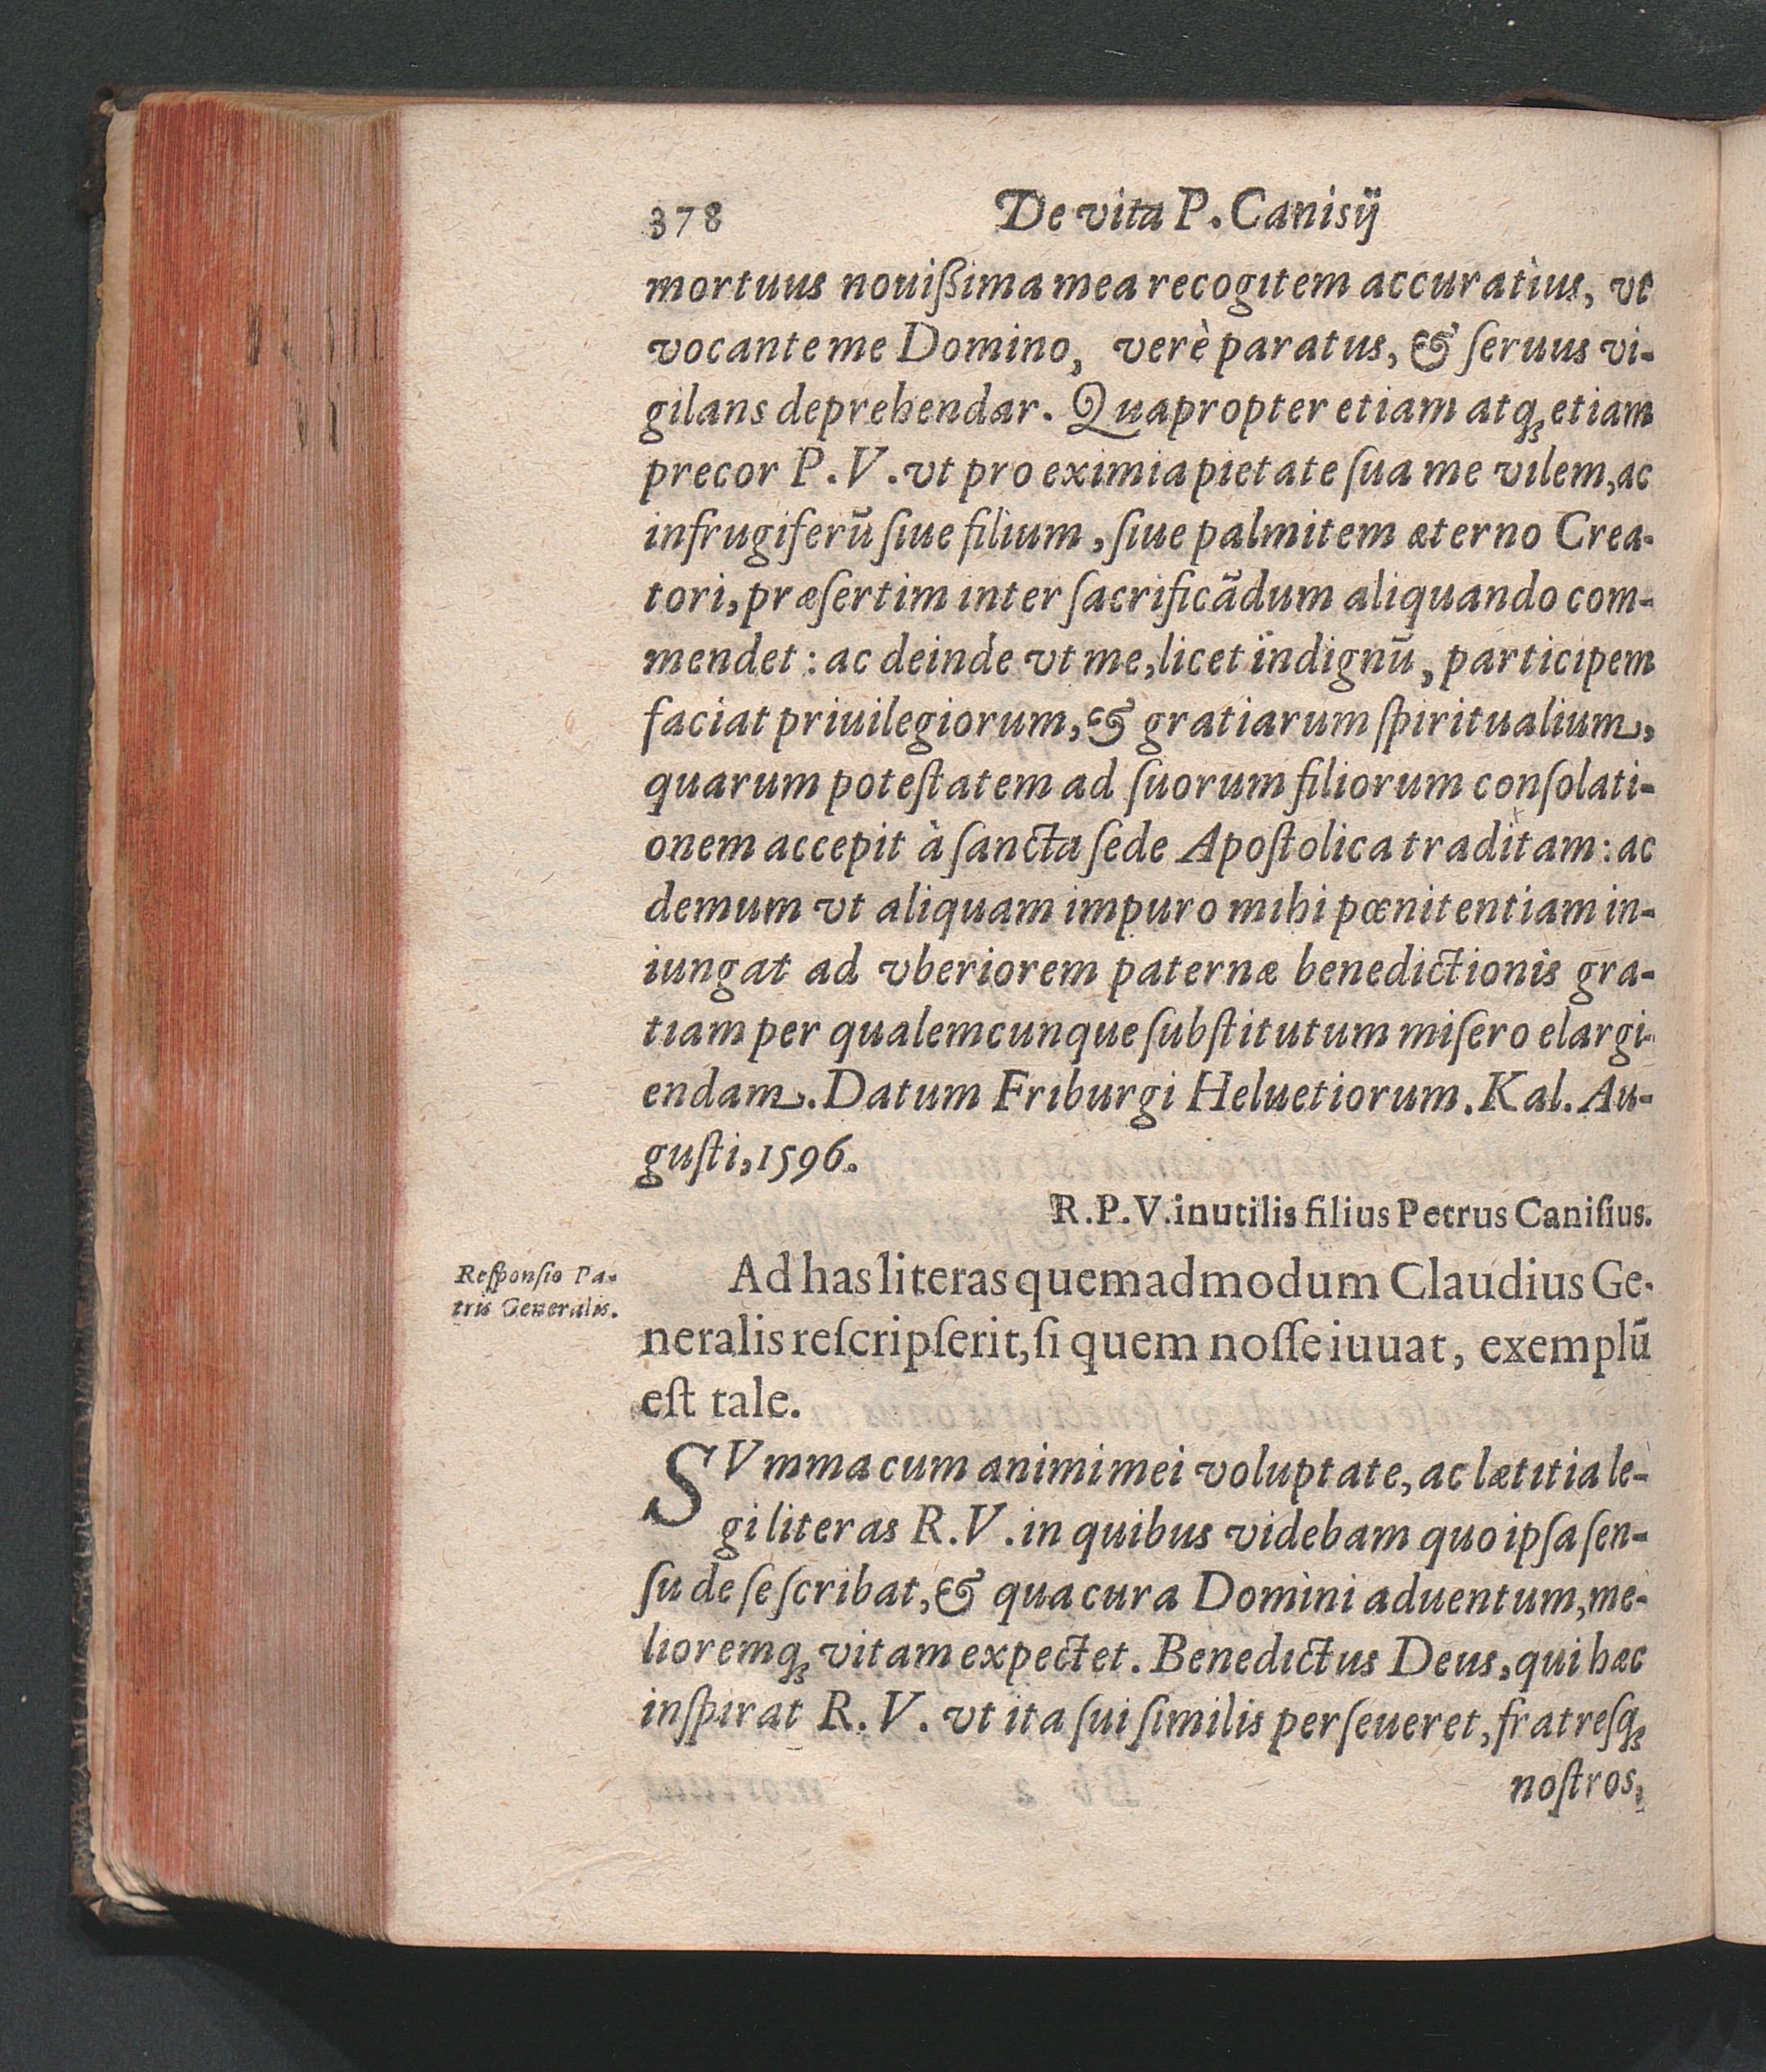 378 De vita P. Canisij
mortuus nouißima mea recogitem accuratius, vt
vocante me Domino, verè paratus, & ſeruus vi-
gilans deprehendar. Quapropter etiam atq; etiam
precor P. V. vt pro eximia pietate ſua me vilem, ac
infrugiferũ ſiue filium, ſiue palmitem æterno Crea-
tori, præſertim inter ſacrificãdum aliquando com-
mendet: ac deinde vt me, licet indignũ, participem
faciat priuilegiorum, & gratiarum ſpiritualium,
quarum poteſtatem ad ſuorum filiorum conſolati-
onem accepit à ſancta ſede Apoſtolica traditam: ac
demum vt aliquam impuro mihi pœnitentiam in-
iungat ad vberiorem paternæ benedictionis gra-
tiam per qualemcunque ſubſtitutum miſero elargi-
endam. Datum Friburgi Heluetiorum. Kal. Au-
guſti, 1596.
R. P. V. inutilis filius Petrus Caniſius.
Reſponſio Pa-
tris Generalis.
Ad has literas quemadmodum Claudius Ge-
neralis reſcripſerit, ſi quem noſſe iuuat, exemplũ
eſt tale.
SVmma cum animi mei voluptate, ac lætitia le-
gi literas R. V. in quibus videbam quo ipſa ſen-
ſu de ſe ſcribat, & qua cura Domini aduentum, me-
lioremq; vitam expectet. Benedictus Deus, qui hæc
inſpirat R. V. vt ita ſui ſimilis perſeueret, fratreſq;
noſtros,